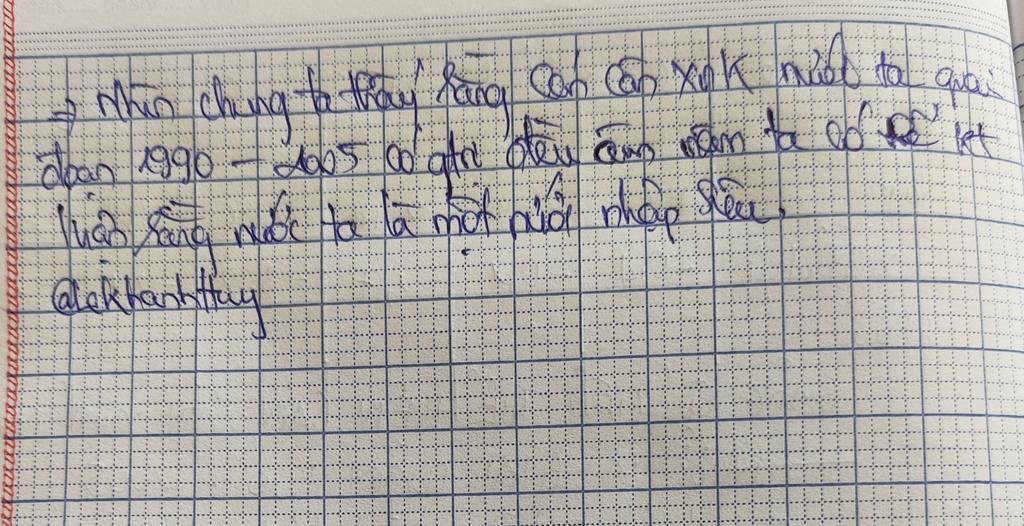 ⇒ Nhìn chung ta thấy rằng Cán Cân XNK nước ta giai
đoạn 1990 - 2005 có giá đều âm nên ta có kết
luận rằng nước ta là một nước nhập siêu.
@LekhanhHuy